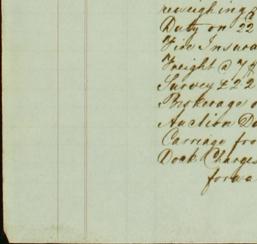 reweighing
Duty on 22
Fire Insura
Freight @ 7/
Survey £22
Brokerage o
Auction Du
Carriage fro
Dock Charges
forwa